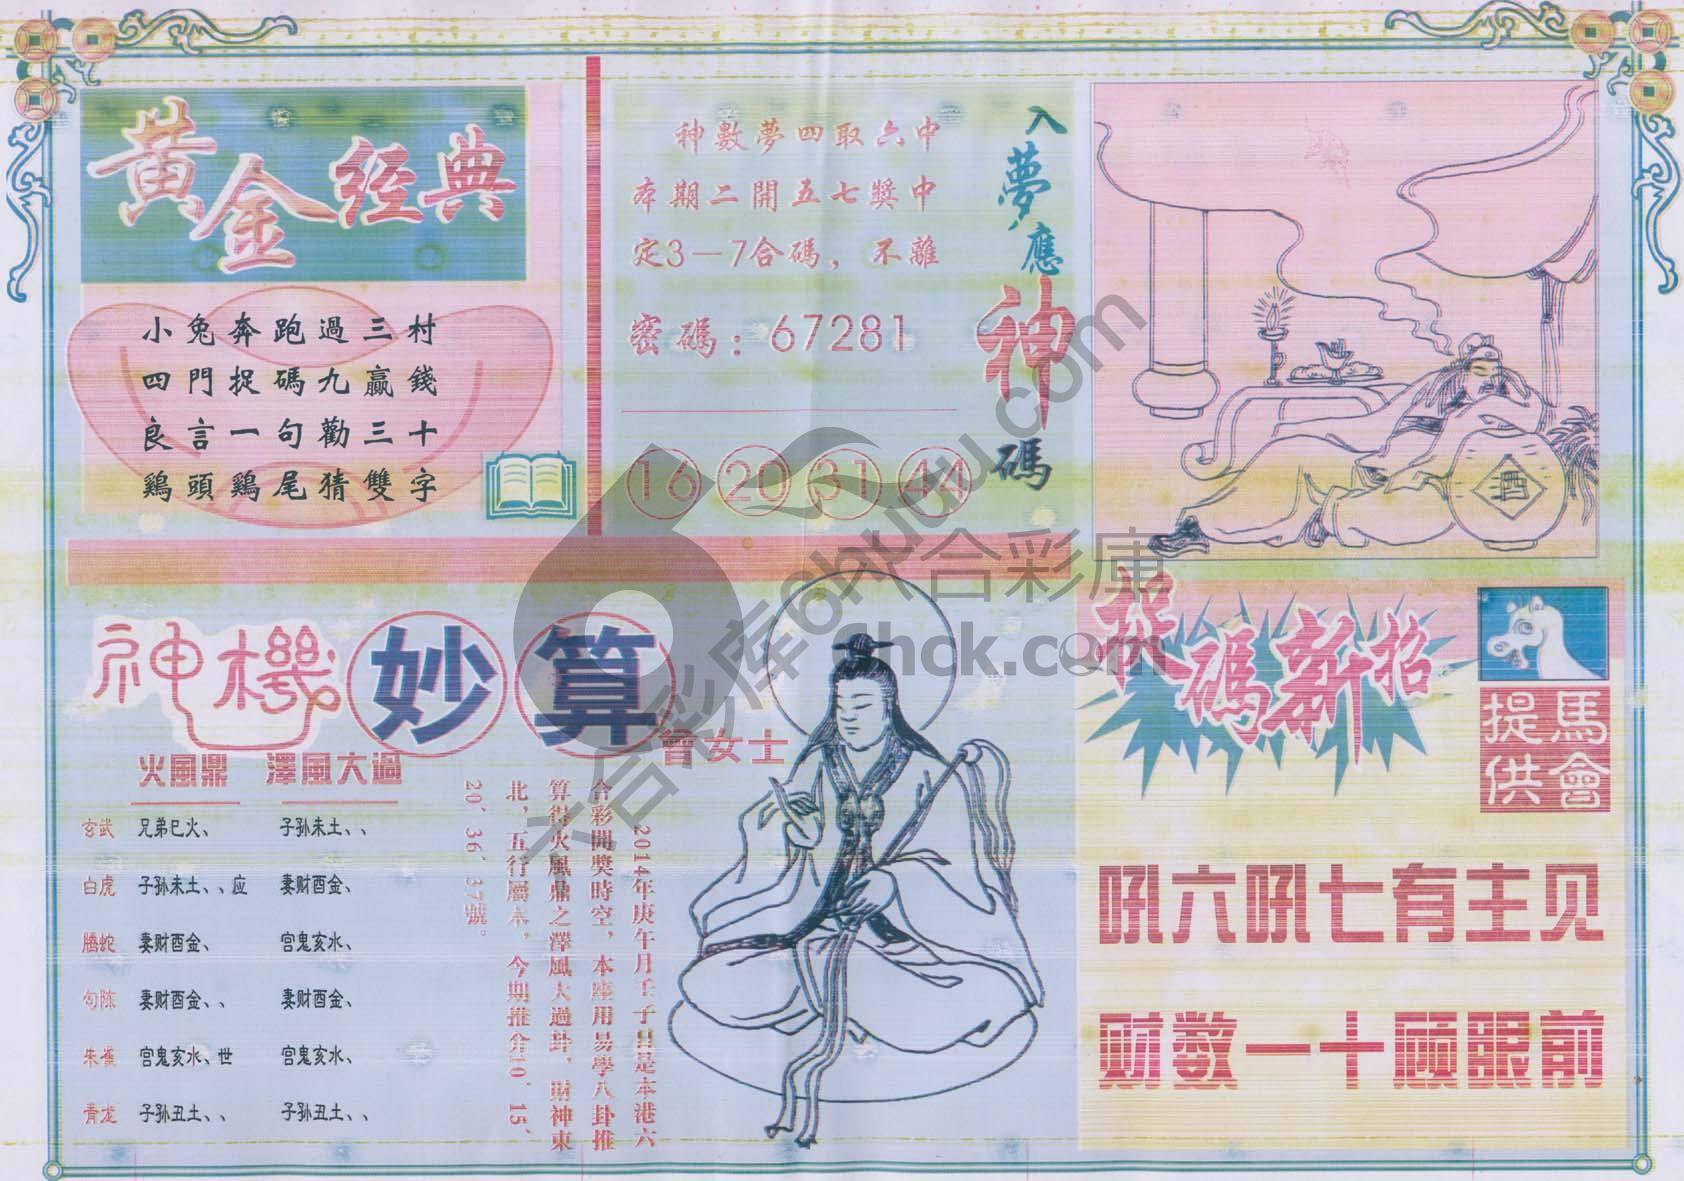 黃金經典
小兔奔跑過三村
四門捉碼九贏錢
良言一句勸三十
鷄頭鷄尾猜雙字
神數夢四取六中
本期二開五七獎中
定3－7合碼，不離
密碼：67281
16 20 31 44
入夢應神碼
酒
神機妙算
曾女士
火風鼎 澤風大過
玄武 兄弟巳火、 子孙未土、、
白虎 子孙未土、、应 妻财酉金、
腾蛇 妻财酉金、 宫鬼亥水、
勾陈 妻财酉金、、 妻财酉金、
朱雀 宫鬼亥水、世 宫鬼亥水、
青龙 子孙丑土、、 子孙丑土、、
2014年庚午月壬子日是本港六
合彩開獎時空，本座用易學八卦推
算得火風鼎之澤風大過卦，財神東
北，五行屬木，今期推介10、15、
20、36、37號。
捉碼新招
馬會提供
吼六吼七有主见
财数一十顾眼前
六合彩库6hutu.com
六合彩庫
6hck.com